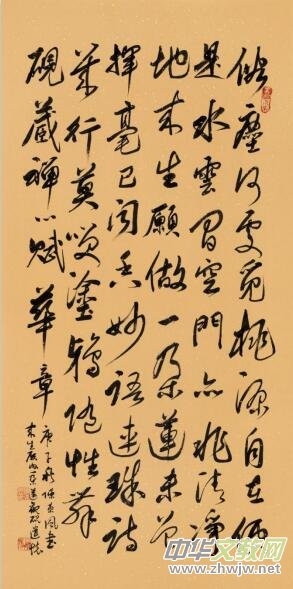 塵何處覓桃源自在便
是水雲間空門亦非清淨
地來生願做一朵蓮未曾
揮毫已聞香妙語連珠詩
行莫笑塗鴉隨性舞
硯藏禪心賦華章
庚子秋書
來生願做一朵蓮
中华文教网
www.zhwjw.net